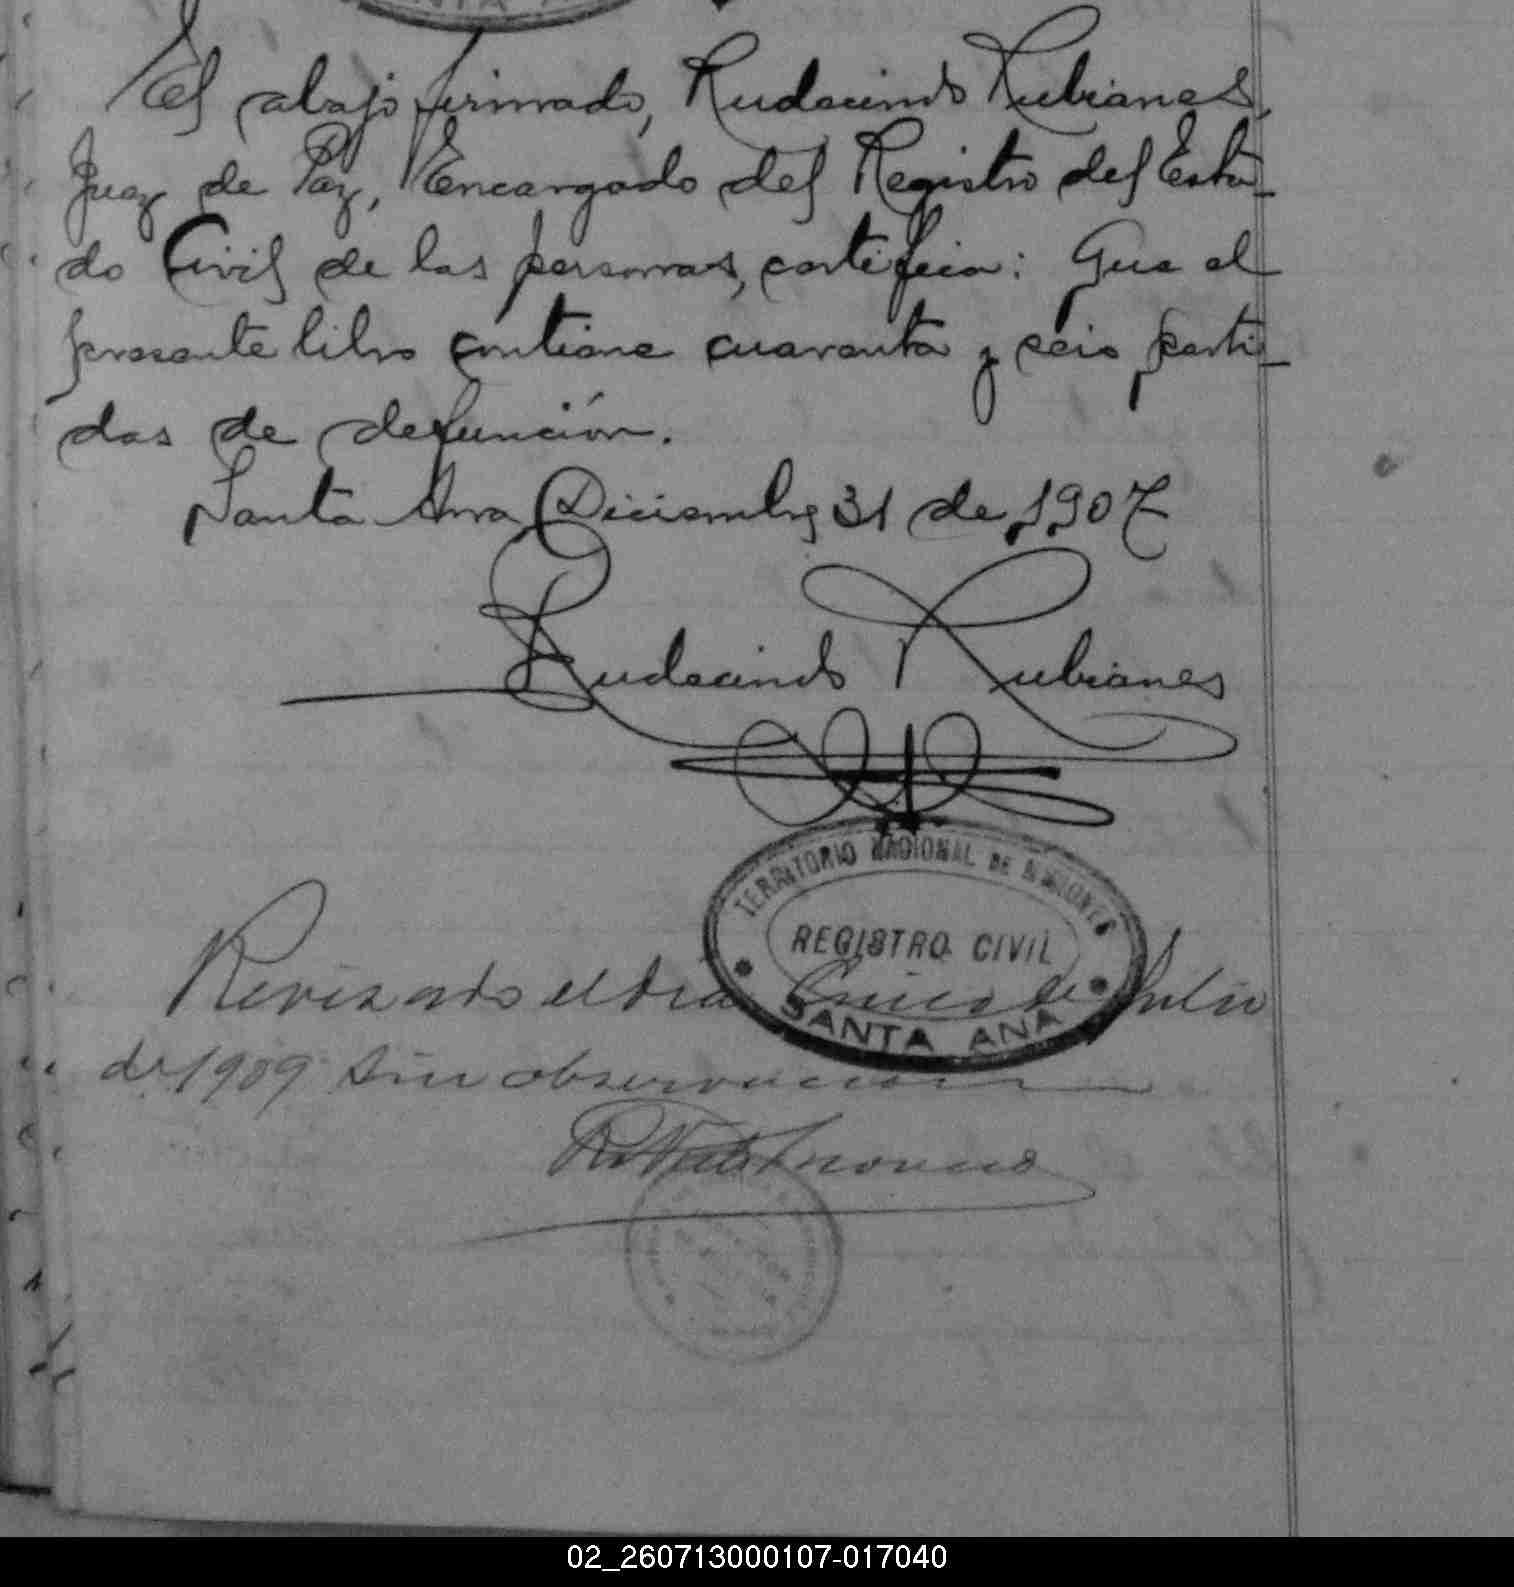 SANTA A
El abajo firmado, Rudecindo Rubianes,
Juez de Paz, Encargado del Registro del Esta-
do Civil de las personas, certifica: Que el
presente libro contiene cuarenta y seis parti-
das de defunción.
Santa Ana Diciembre 31 de 1907
Rudecindo Rubianes
TERRITORIO NACIONAL DE MISIONES
REGISTRO CIVIL
SANTA ANA
Revisado el dia Cinco de Julio
de 1909 sin observacion
02_260713000107-017040